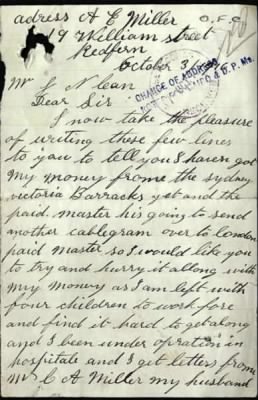 adress A E Miller O.F.C
19 William street
Redfern
October 3
CHANGE OF ADDRESS
Mr J N Lean
Dear Sir
I now take the pleasure
of writing these few lines
to you to tell you I haven got
My money frome the sydney
victoria Barracks yet and the
paid master his going to send
another cablegram over to london
paid master so I would like you
to try and hurry it allong with
my money as I am left with
four children to work fore
and find it hard to get along
and I been under operation in
hospitale and I get letters frome
Mr C A Miller my husband